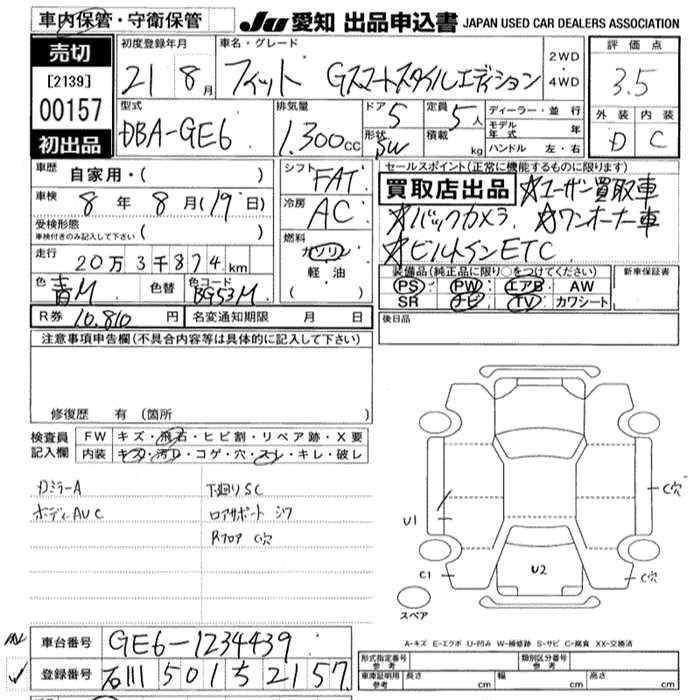 車内保管・守衛保管
JU 愛知 出品申込書 JAPAN USED CAR DEALERS ASSOCIATION
売切
[2139]
00157
初出品
初度登録年月
21 8月
車名・グレード
フィット Gスマートスタイルエディション
2WD
・
4WD
評価点
3.5
外装 内装
D C
型式
DBA-GE6
排気量
1.300cc
ドア 5
形状 SW
定員 5人
積載 kg
ディーラー・並行
モデル年式 年
ハンドル 左・右
車歴 自家用・( )
車検 8年 8月(19日)
受検形態
車検付きのみ記入して下さい ( )
走行 20万3千874km
色 青M 色替 色コード BG53M
シフト FAT
冷房 AC
燃料
ガソリン
軽油
( )
セールスポイント(正常に機能するものに限ります)
買取店出品 ☆ユーザー買取車
☆バックカメラ ☆ワンオーナー車
☆ビルトインETC
装備品(純正品に限り○をつけてください)
PS PW エアB AW
SR ナビ TV カワシート
新車保証書
R券 10.810円 名変通知期限 月 日
後日品
注意事項申告欄(不具合内容等は具体的に記入して下さい)
修復歴 有(箇所 )
検査員記入欄
FW キズ・飛石・ヒビ割・リペア跡・X要
内装 キズ・汚れ・コゲ・穴・スレ・キレ・破レ
DミラーA
ボディAUC
下廻りSC
ロアサポート シワ
Rフロア C穴
C穴
U1
U2
C1
C穴
スペア
A-キズ E-エクボ U-凹み W-補修跡 S-サビ C-腐食 XX-交換済
車台番号 GE6-1234439
登録番号 石川 501 ち 2157
形式指定番号 参考
類別区分番号 参考
車庫証明用 参考 長さ cm 幅 cm 高さ cm